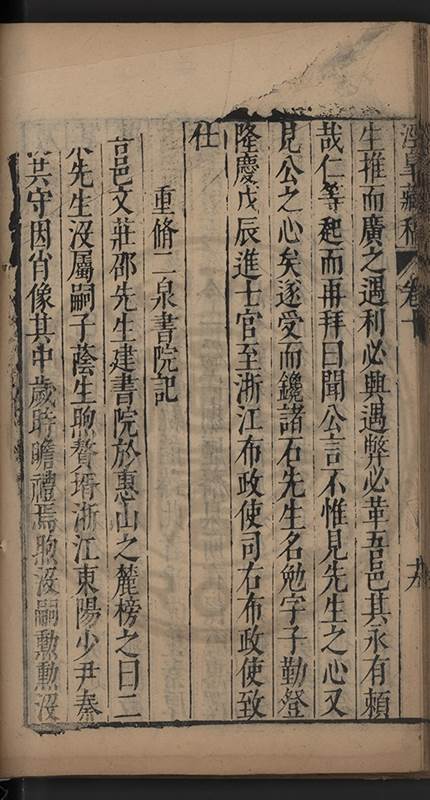 涇皋藏稿 卷十 十九
生推而廣之遇利必興遇弊必革吾邑其永有賴
哉仁等起而再拜曰聞公言不惟見先生之心又
見公之心矣遂受而鑱諸石先生名勉字子勤登
隆慶戊辰進士官至浙江布政使司右布政使致
仕
重脩二泉書院記
吾邑文莊邵先生建書院於惠山之麓榜之曰二
泉先生沒屬嗣子蔭生煦贅壻浙江東陽少尹秦
其守因肖像其中歲時瞻禮焉煦沒嗣勳勳沒